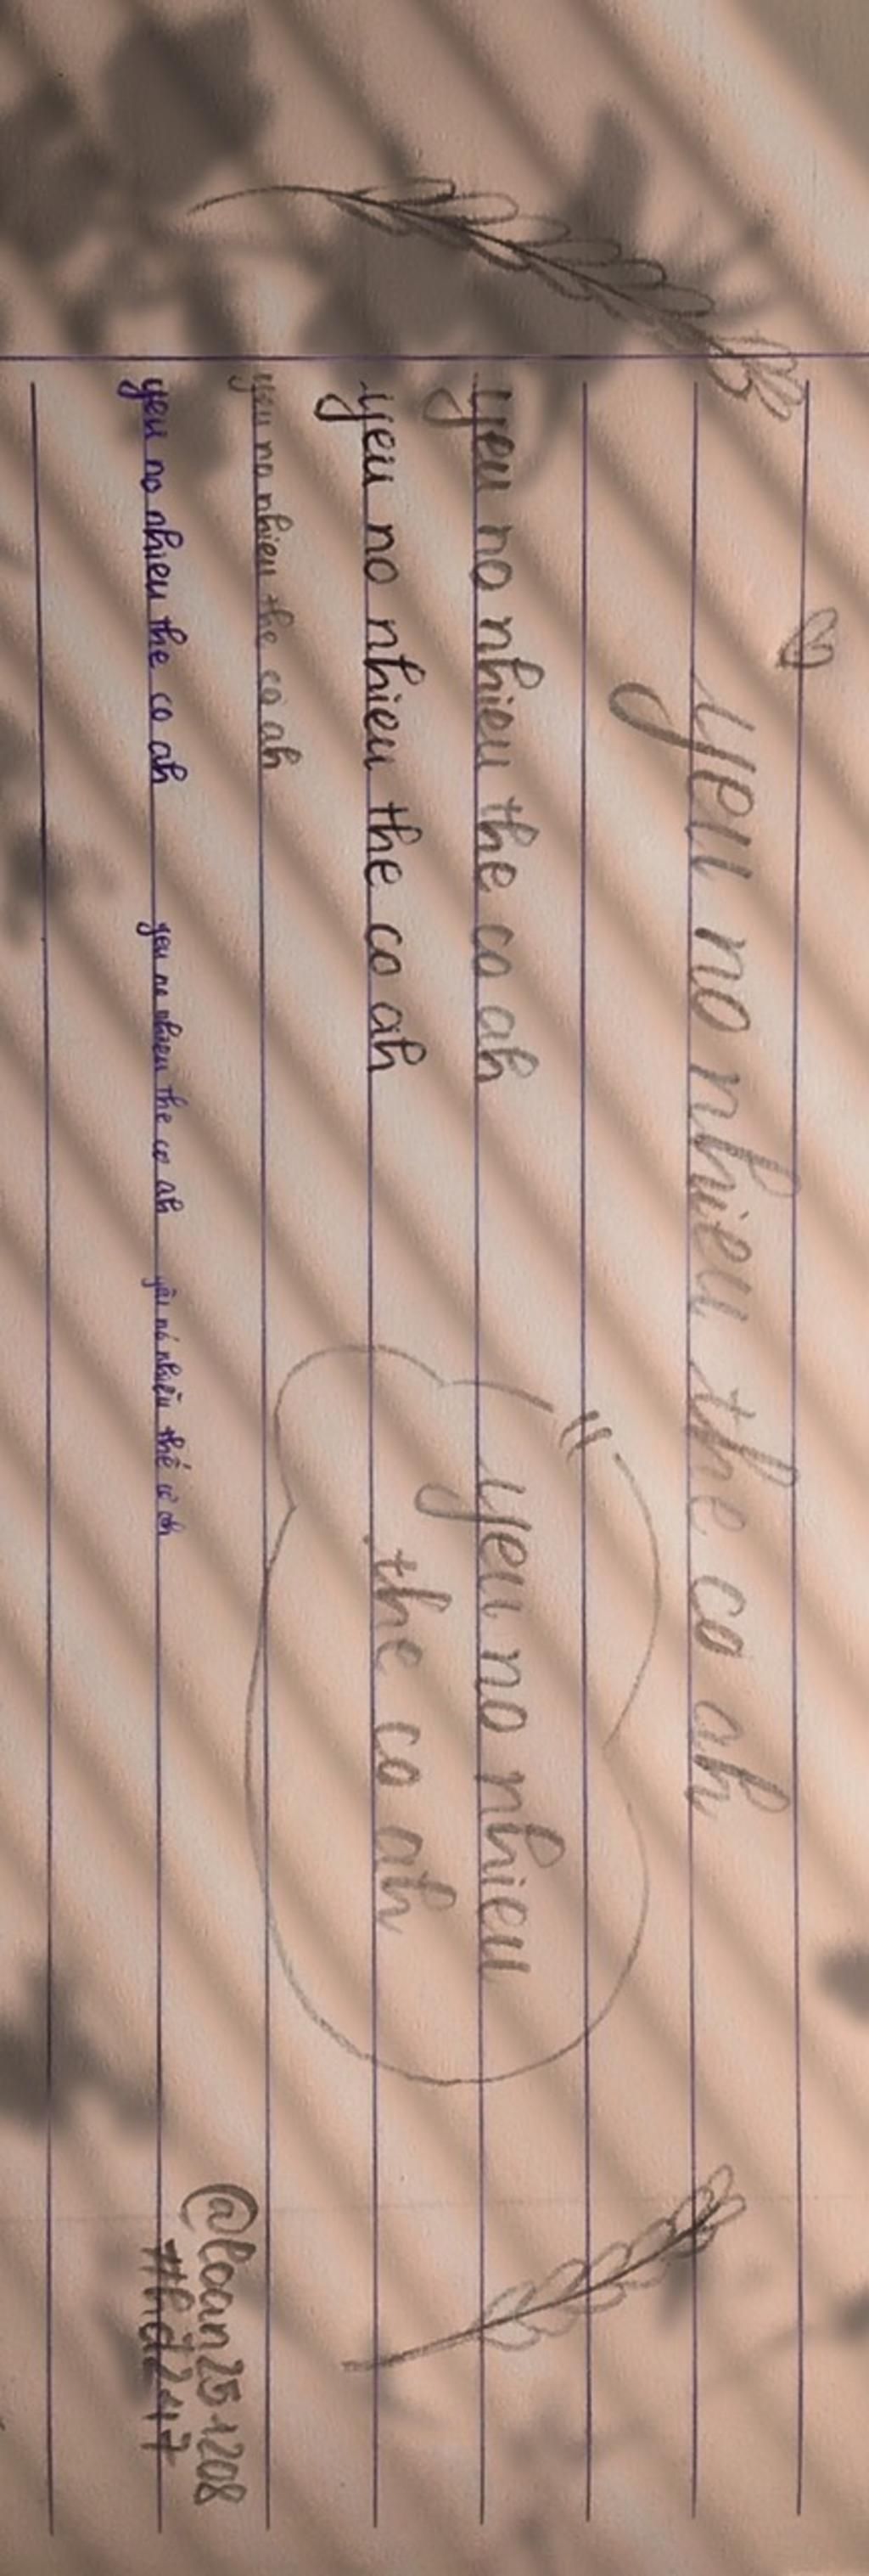 yeu no nhieu the co ah
yeu no nhieu the co ah
yeu no nhieu the co ah
yeu no nhieu
the co ah
yeu no nhieu the co ah
yeu no nhieu the co ah yeu no nhieu the co ah yêu nó nhiều thế cơ ah
@loan251208
#hd247